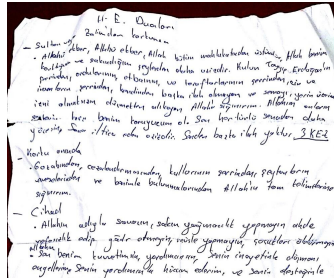 H. E. Duaları
Zalimden korkunca
- Sultan
- Allahü ekber, Allahü ekber, Allah bütün mahlukatından üstün, Allah benim
korktuğum ve sakındığım şeylerden daha azizdir. Kulun Tayyip Erdoğan'ın
şerrinden, ordularının, etbaının, ve taraftarlarının şerrinden, cin ve
insanların şerrinden, kendinden başka ilah olmayan ve semayı yerin üzerine
izni olmaksızın düşmekten alıkoyan Allah'a sığınırım. Allahım onların
şerrinden benim koruyucum ol. Sen her türlü senadan daha
yücesin. Sana iltica eden azizdir. Senden başka ilah yoktur. 3 KEZ
- Korku anında
- Gazabından, cezalandırmasından, kullarının şerrinden, şeytanların
vesveselerinden ve benimle bulunmalarından Allah'ın tam kelimelerine
sığınırım.
- Cihad
- Allahım adıyla savaşın, sakın yağmacılık yapmayın ahde
edip, gadr etmeyin, müsle yapmayın, çocukları öldürmeyin
Allahım
- Sen benim kuvvetimsin, yardımcımsın. Senin inayetinle düşmanı
engellerim, Senin yardımınla hücum ederim, ve senin desteğinle